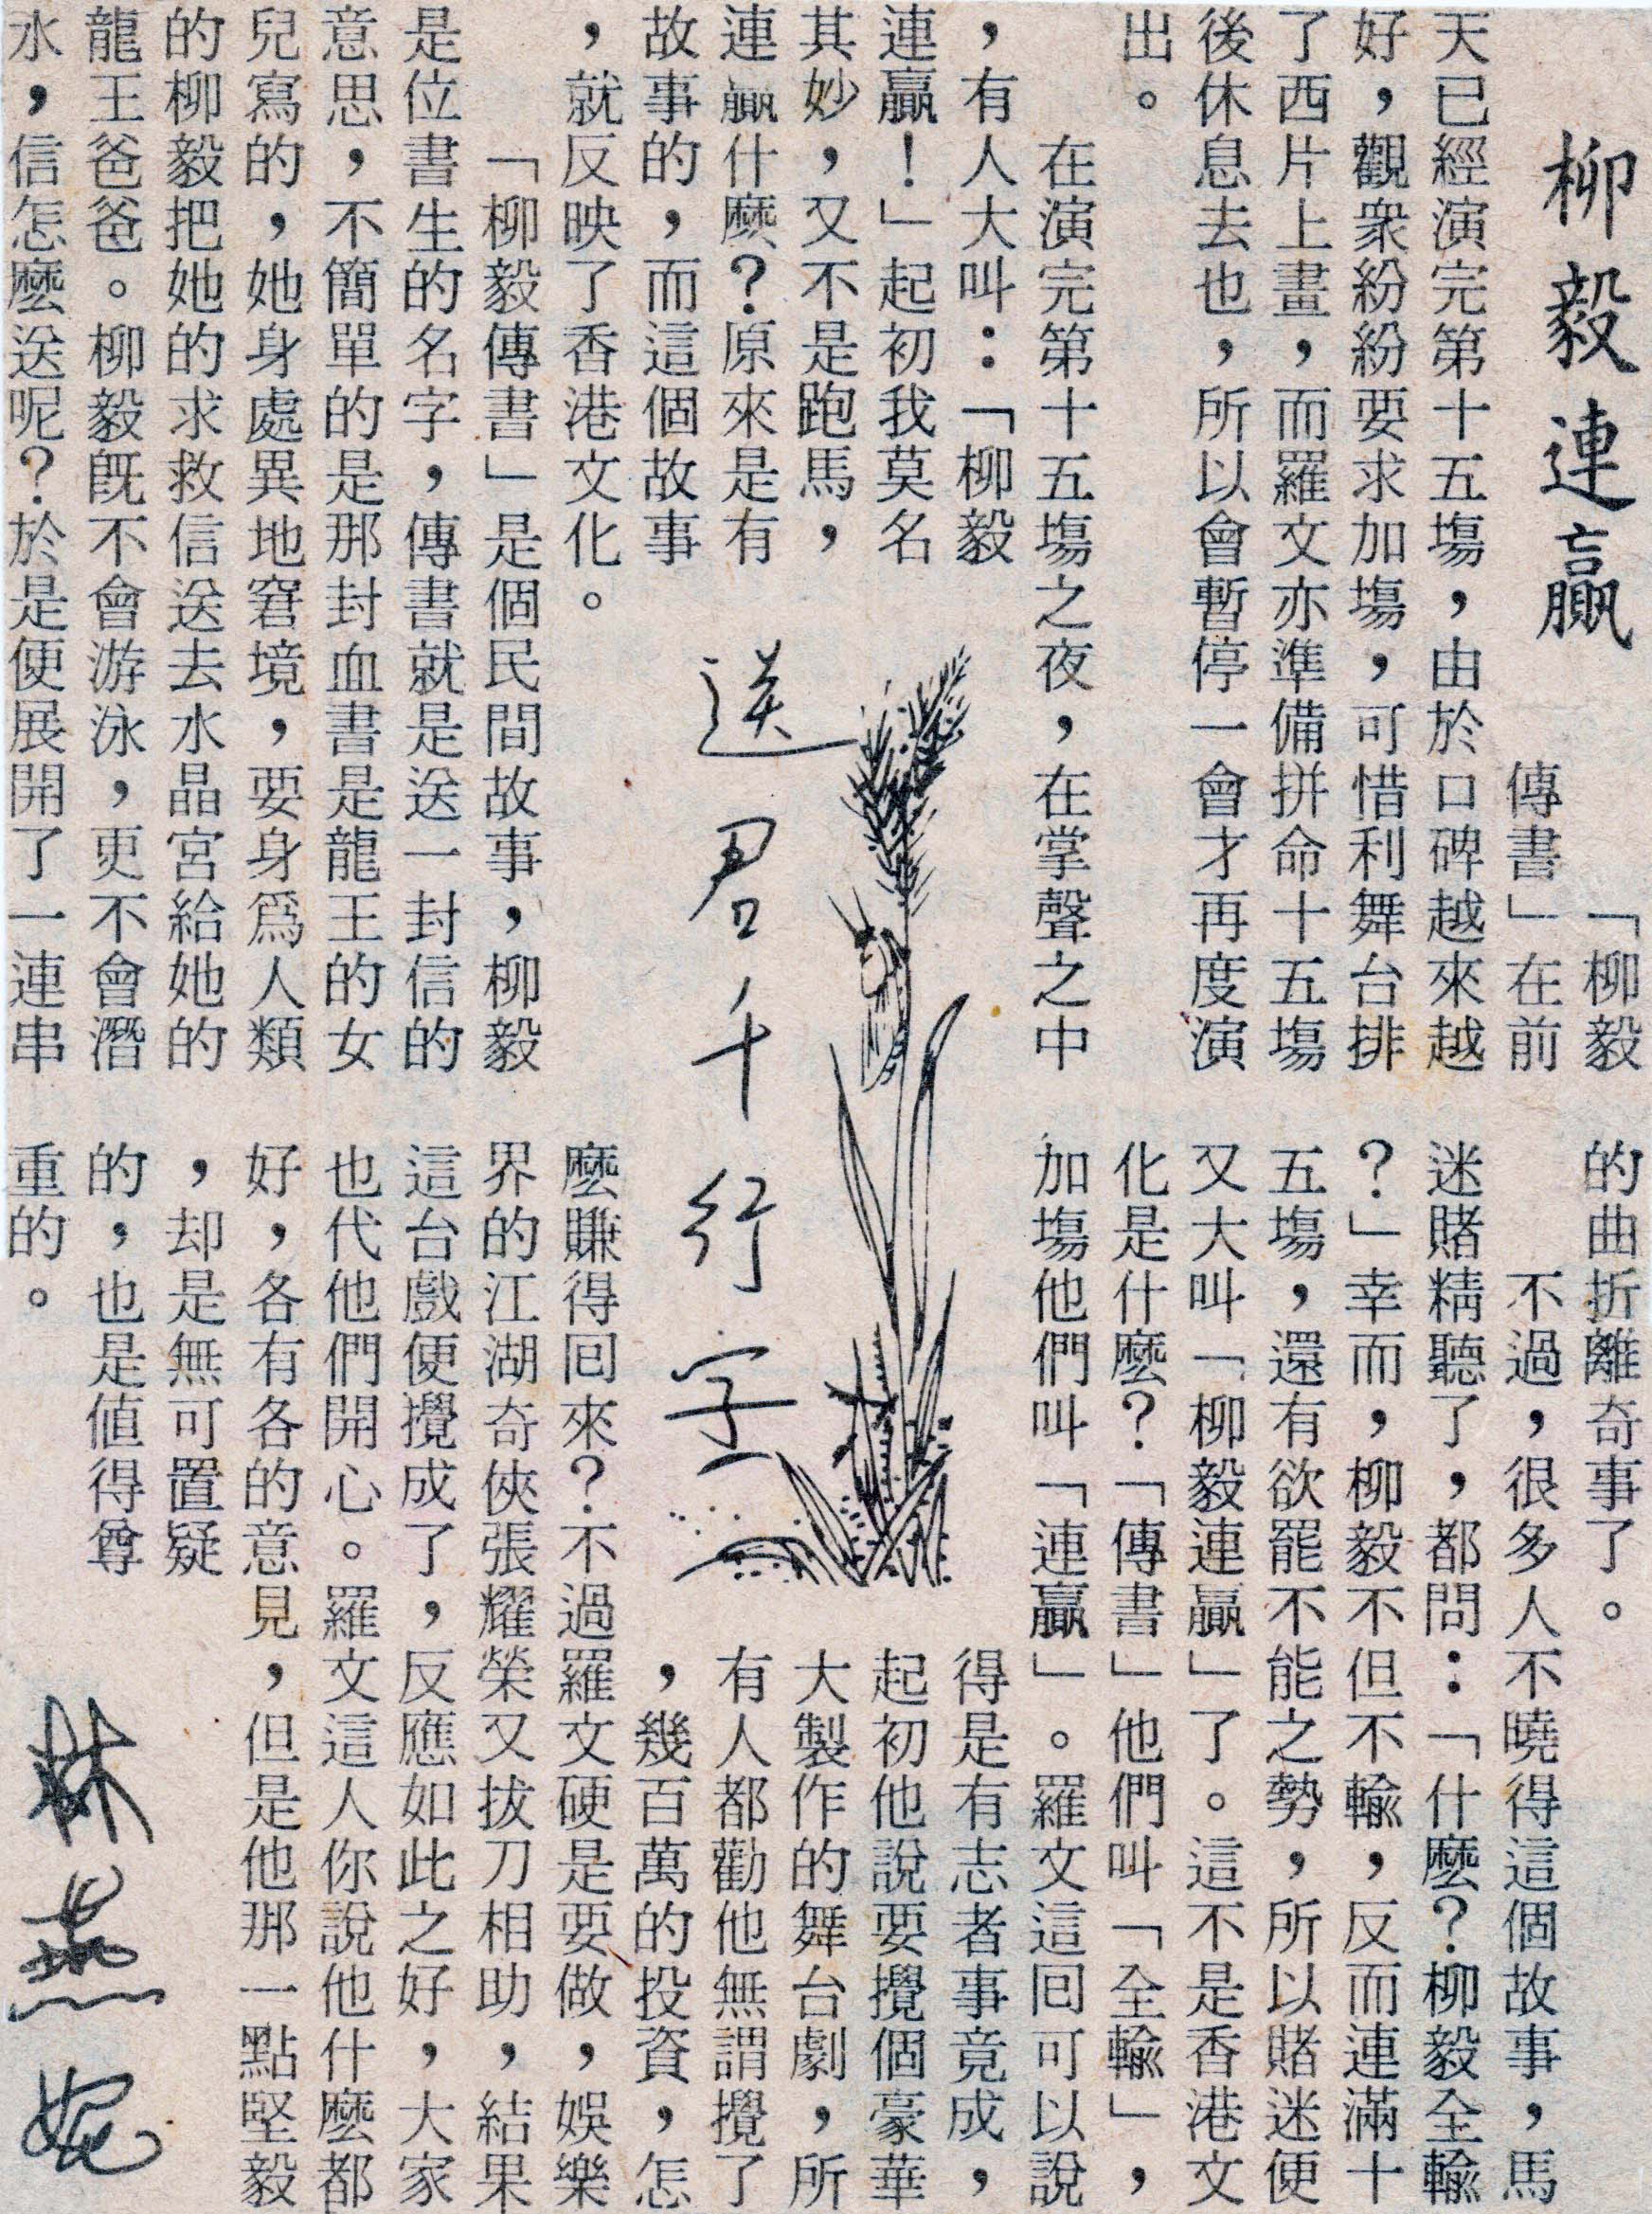 柳毅連贏
「柳毅
傳書」在前
天已經演完第十五塲，由於口碑越來越
好，觀衆紛紛要求加塲，可惜利舞台排
了西片上畫，而羅文亦準備拼命十五塲
後休息去也，所以會暫停一會才再度演
出。
在演完第十五塲之夜，在掌聲之中
，有人大叫：「柳毅
連贏！」起初我莫名
其妙，又不是跑馬，
連贏什麽？原來是有
故事的，而這個故事
，就反映了香港文化。
「柳毅傳書」是個民間故事，柳毅
是位書生的名字，傳書就是送一封信的
意思，不簡單的是那封血書是龍王的女
兒寫的，她身處異地窘境，要身爲人類
的柳毅把她的求救信送去水晶宮給她的
龍王爸爸。柳毅旣不會游泳，更不會潛
水，信怎麽送呢？於是便展開了一連串
的曲折離奇事了。
不過，很多人不曉得這個故事，馬
迷賭精聽了，都問：「什麽？柳毅全輸
？」幸而，柳毅不但不輸，反而連滿十
五塲，還有欲罷不能之勢，所以賭迷便
又大叫「柳毅連贏」了。這不是香港文
化是什麽？「傳書」他們叫「全輸」，
加塲他們叫「連贏」。羅文這回可以說
得是有志者事竟成，
起初他說要攪個豪華
大製作的舞台劇，所
有人都勸他無謂攪了
，幾百萬的投資，怎
麽賺得回來？不過羅文硬是要做，娛樂
界的江湖奇俠張耀榮又拔刀相助，結果
這台戲便攪成了，反應如此之好，大家
也代他們開心。羅文這人你說他什麽都
好，各有各的意見，但是他那一點堅毅
，却是無可置疑
的，也是値得尊
重的。
送君千行字
林燕妮